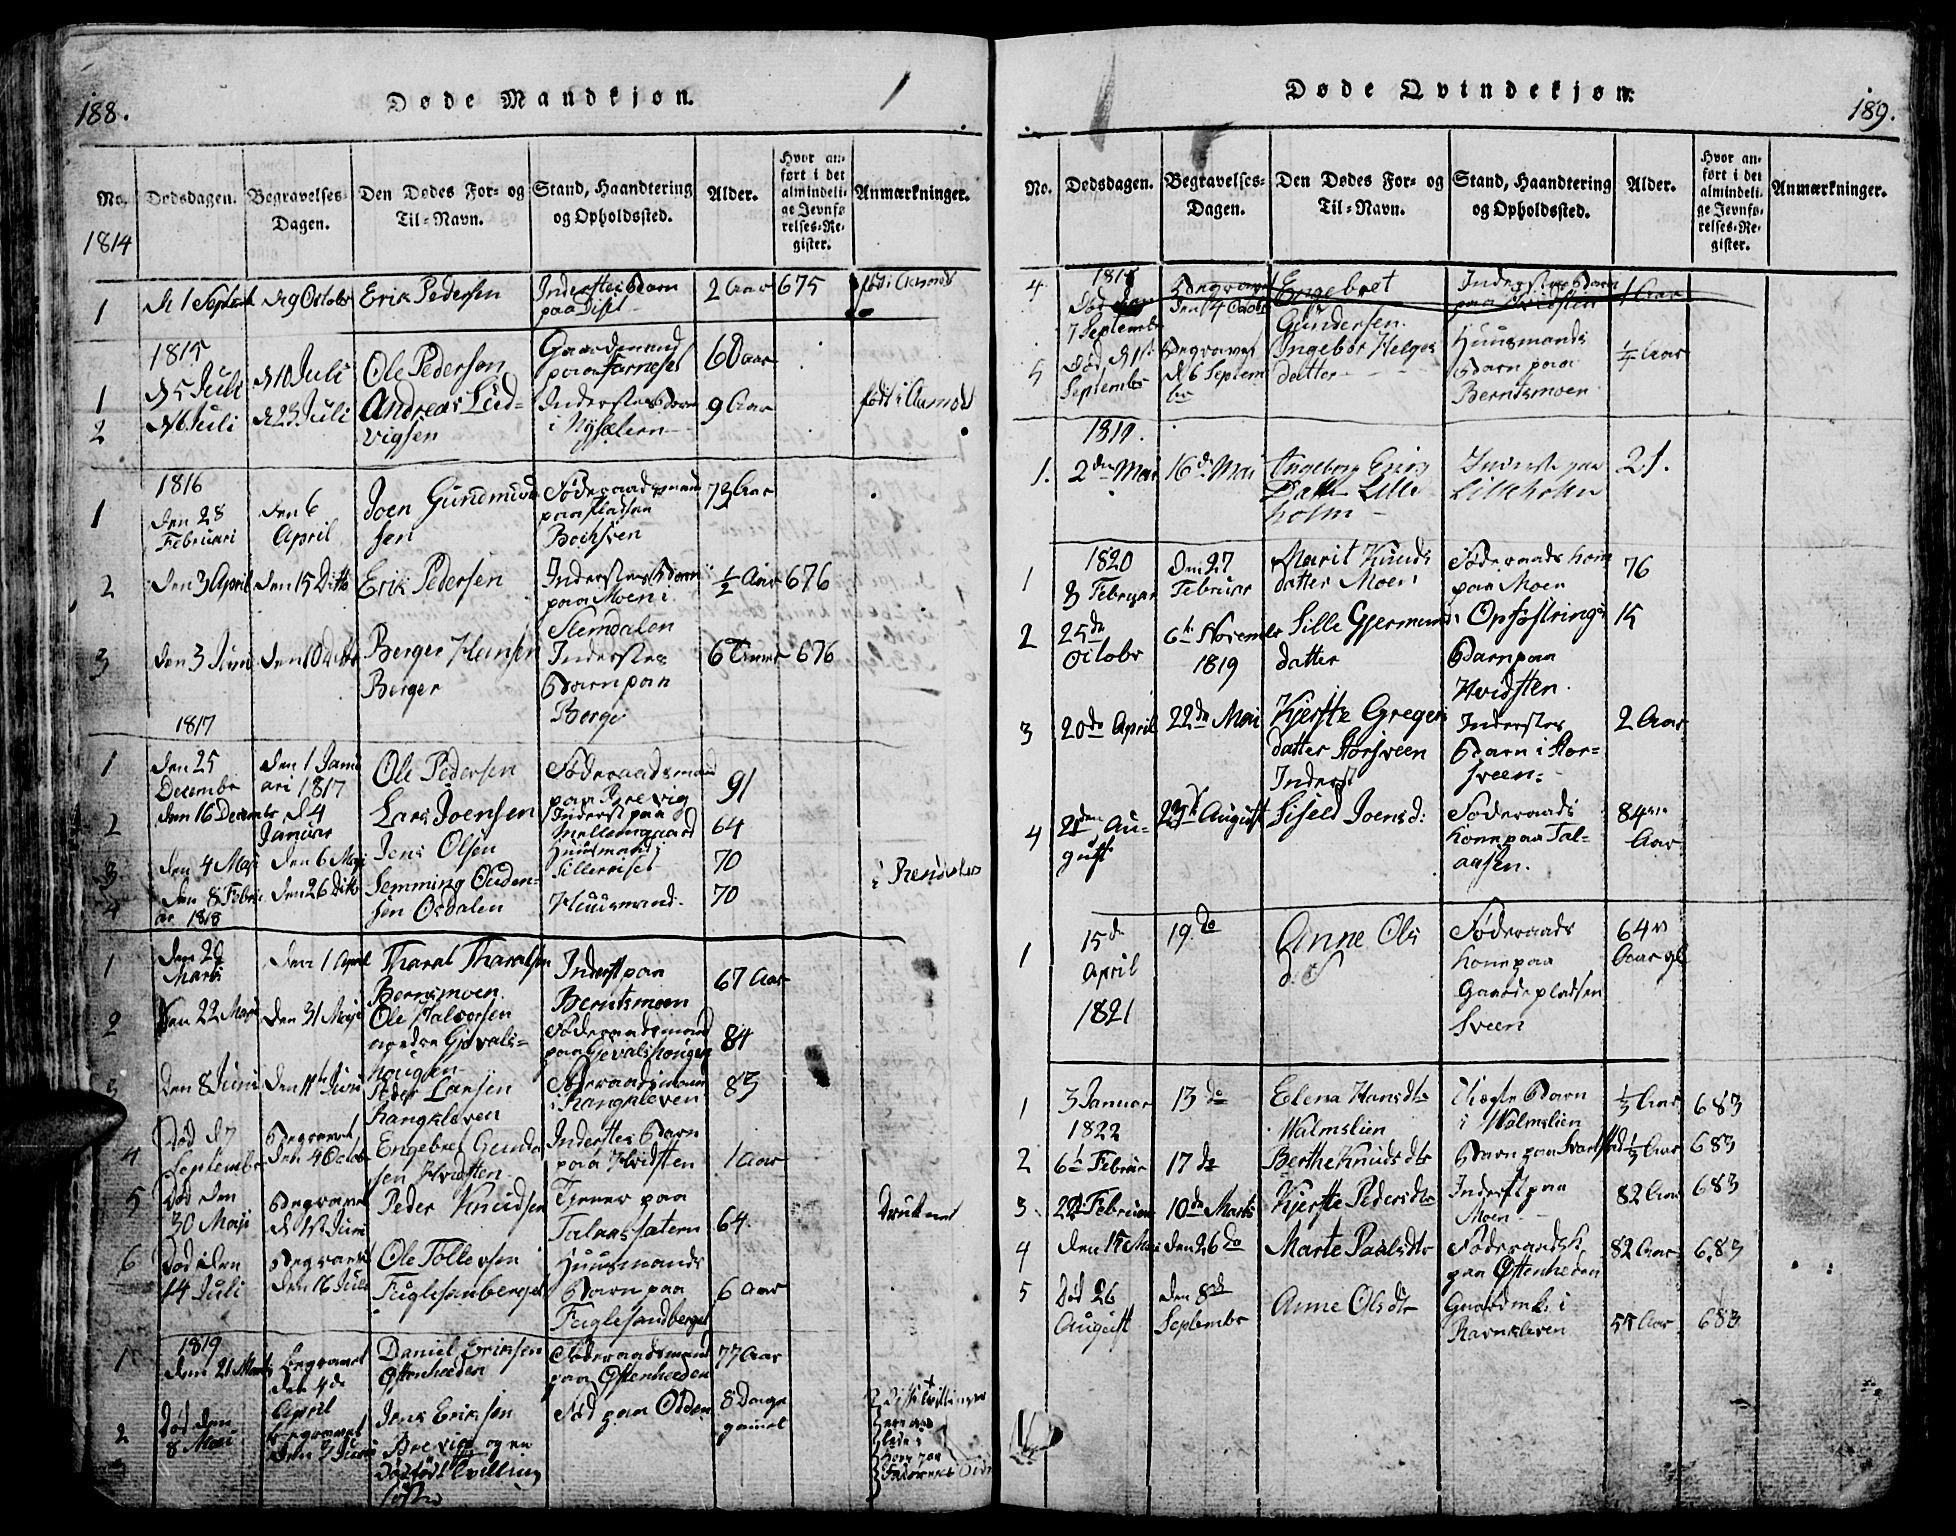 188.
Døde Mandkjøn.
No. Dødsdagen. Begravelses-Dagen. Den Dødes For- og Til-Navn. Stand, Haandtering og Opholdssted. Alder. Hvor anført i det almindelige Jevnførelses-Register. Anmærkninger.
1814
1 d 1 Septembr d 9 Octobr Erik Pedersen Inderstes Barn paa Diset 2 Aar 675 født i Aamot
1815
1 d 5 Juli d 10 Juli Ole Pedersen Gaardmand paa Farneset 60 aar
2 d 16 Juli d 23 Juli Andreas Lud-
vigsen Inderstes Barn i Nysætern 9 Aar født i Aamot
1816
1 den 28 Februari den 6 April Joen Gundmund
sen Føderaadsmand paa Pladsen 73 Aar
2 den 3 April den 15 Ditto Erik Pedersen Inderstes Barn paa Moen i Slemdalen ½ Aar 676
3 den 3 Juni den 10 ditto Berger Hansen
Berger Inderstes Barn paa Berge 6 Timer 676
1817
1 den 25 Decembr den 1 Janu
ari 1817 Ole Pedersen Føderaadsmand paa Brevig 91
2 den 16 Decembr d 4 Januar Lars Joensen Inderst paa Mellemgaard 64
3 den 4 Maji den 6 Maji Jens Olsen Huusmand i Lilleriset 70
4 den 8 Febru
ar 1818 den 26 Ditto Semming Ouden-
sen Osdalen Huusmand 70 i Rendalen
1 den 26 Marti den 1 April Tharal Tharalsen
Berntsmoen Inderst paa Berntsmoen 67 Aar
2 Den 22 Maji den 31 Maji Ole Halvorsen
nedre Gjøvals-
hougen Føderaadsmand paa Gjøvalshougen 84
3 den 8 Juni den 11te Juni Peder Larsen
Rangkleven Føderaadsmand i Rangkleven 83
4 Død d 7 Septembr Begravet den 4 Octobr Engebret Gunder
sen Hvidsten Inderstes Barn paa Hvidsten 1 Aar
5 Død den 30 Maji Begravet d 15 Juni Peder Knudsen Tjener paa Talaassætern 64. Druknet
6 Død den 14 Juli Begravet den 16 Juli Ole Tollersen
Fuglesandberget Huusmands Barn paa Fuglesandberget 6 Aar
1819
1 den 21 Marts begravet den 4de April Daniel Eriksen
Østenheeden Føderaadsmand paa Østenheeden 77 Aar
2 Død den 8 Mai begravet den 3 Juni Jens Eriksen
Brevig og en
dødfødt Tvilling
søster Fød paa Odden 8 Dage gammel
189.
Døde Qvindekjøn.
No. Dødsdagen. Begravelses-Dagen. Den Dødes For- og Til-Navn. Stand, Haandtering og Opholdssted. Alder. Hvor anført i det almindelige Jevnførelses-Register. Anmærkninger.
1818
4 Død den 7 Septembr Begravet den 14 Octobr Engebret
Gundersen. Inderstes Barn paa Hvidsten 1 Aar
5 Død d 1ste Septembr Begravet d 6 Septem
br Ingebor Helges
datter Huusmands Barn paa Berntsmoen ¼ Aar
1819.
1. 2den Mai 16de Mai Ingeborg Erics
Datt Lille
holm Inderst paa Lilleholm 21.
1820
1 8 Februar den 27 Februar Marit Knuds
datter Moen Føderaads kone paa Moen 76
2 25de Octobr 6te Novembr
1819 Sille Gjermunds
datter Opfostrings Barn paa Hvidsten. 15
3 20de April 22de Mai Kjerste Gregers
datter Storsveen
Inderst Inderstes Barn i Stor-
sveen. 2 Aar
4 21den Au-
gust 23de August Siseld Joensd: Føderaads kone paa Tal-
aasen. 84 Aar
1 15de April
1821 19do Anne Ols
d: Føderaads kone paa Gaardepladsen Sveen 64 Aar gl
1 3 Januar
1822 13do Elena Hansdtr
Walmslien Uægte Barn i Walmslien ⅓ Aar 683
2 6te Februar 17do Berthe Knudsdtr Barn paa Svartstad ⅓ Aar 683
3. 22 Februar 10de Marts Kjerste Pedersdtr Inderst paa Moen 82 Aar 683
4 den 15 Mai den 26do Marte Paulsdtr Føderaadsk. paa Østenheden 82 Aar 683
5 Død 26 August den 8de Septembr Anne Olsdtr Gaardmk. i Ravnkleven 55 Aar 683